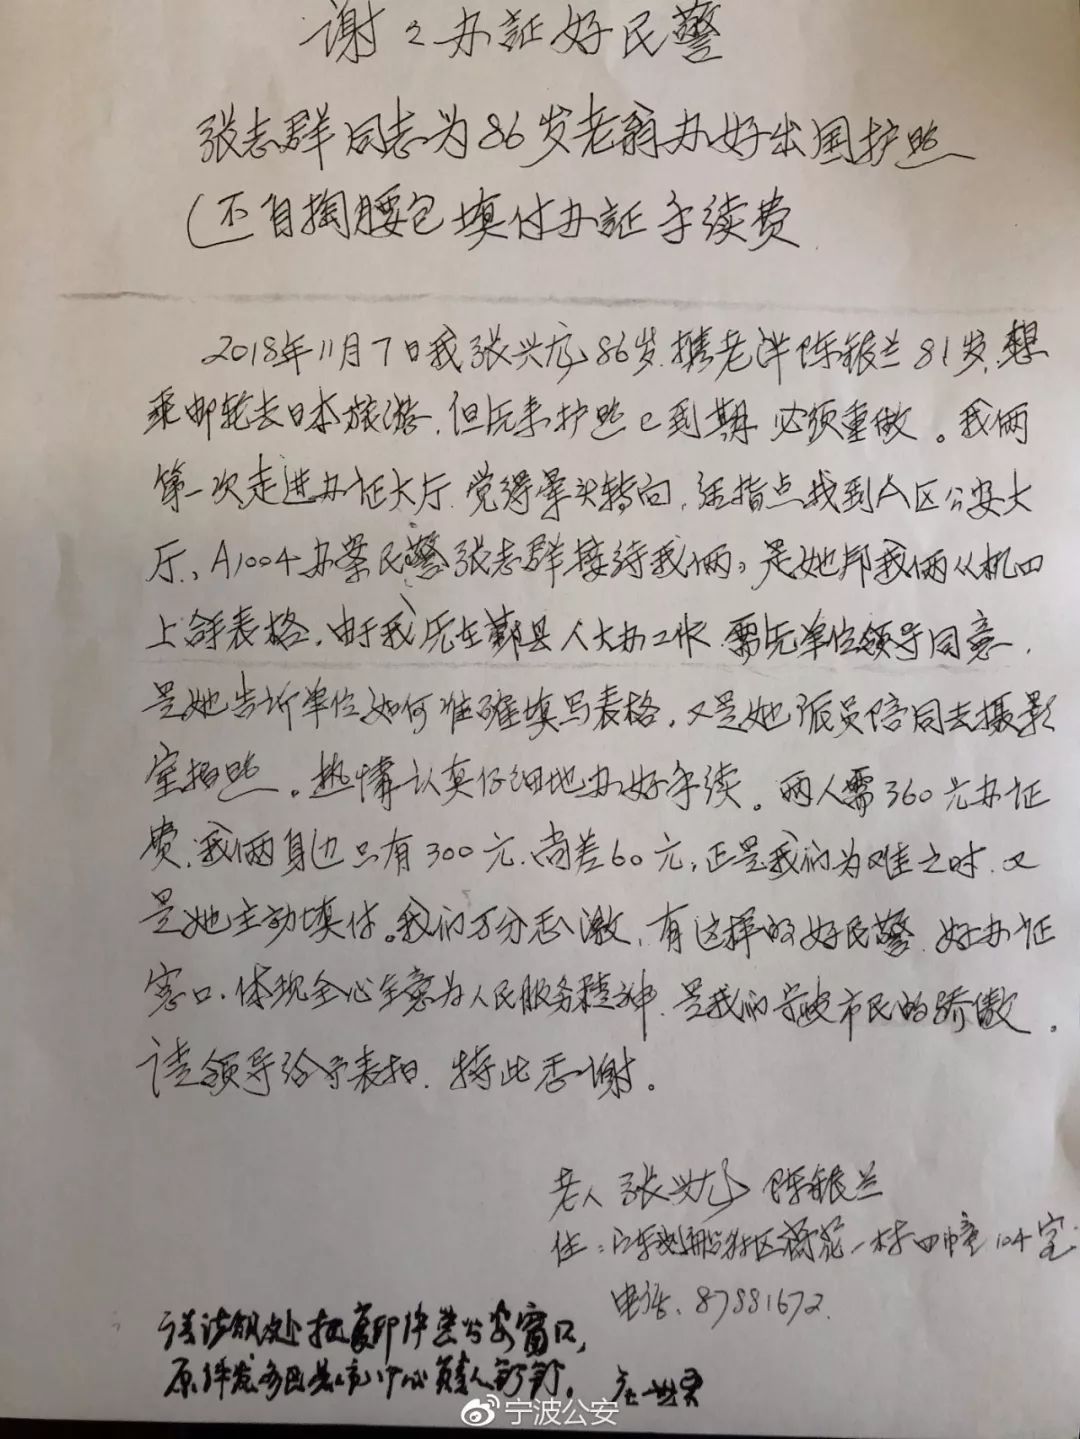 谢々办証好民警
张志群同志为86岁老翁办好出国护照
(还自掏腰包填付办証手续费
2018年11月7日我张兴龙86岁.携老伴陈银兰81岁,想
乘邮轮去日本旅游.但原来护照已到期 必须重做。我俩
第一次走进办证大厅.觉得晕头转向,经指点找到A区公安大
厅、A1004办案民警张志群接待我俩,是她帮我俩从机四
上拿表格.由于我原在鄞县人大办工作.需原单位领导同意.
是她告诉单位如何准确填写表格,又是她派员陪同去摄影
室拍照。热情认真仔细地办好手续。两人需360元办证
费.我俩身边只有300元.尚差60元,正是我们为难之时.又
是她主动填付。我们万分感激,有这样的好民警.好办证
窗口.体现全心全意为人民服务精神.是我们宁波市民的骄傲.
请领导给予表扬.特此感谢。
老人 张兴龙 陈银兰
住:江东划船社区 一村四幢104室
电话.87881672
请 处把复印件 公安窗口,
原件发 中心负责人
宁波公安